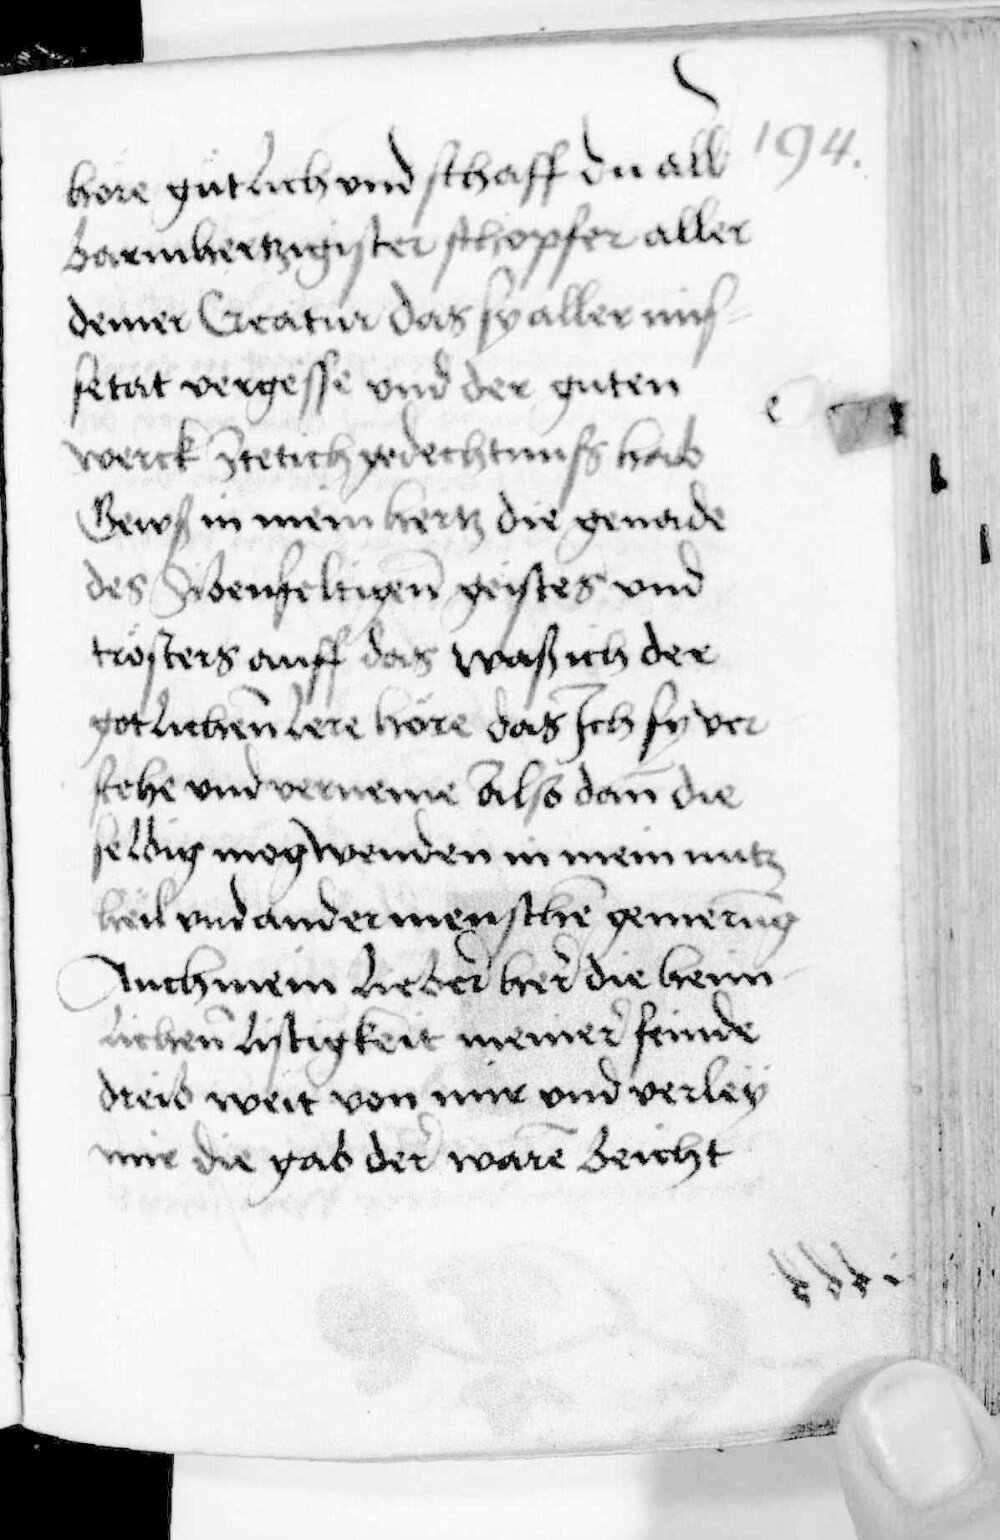 194.
höre gütlich vnd schaff du all
barmhertzigister schöpfer aller
deiner Creatur das sy aller mis=
setat vergesse vnd der guten
werck stetich gedechtnuß hab
Gewß in mein hertz die genade
des sibenfeltigen̄ geistes vnd
trösters auff das waß ich der
gotlichen̄ lere höre das Ich sy ver
stehe vnd verneme Also dan̄ die
selbig mög wenden in mein nutz
heil vnd ander mensche͂ gemerūg
Auch mein lieber her die heim
lichen̄ listigkeit meiner feinde
dreib weit von mir vnd verleÿ
mir die gab der ware͂ beicht